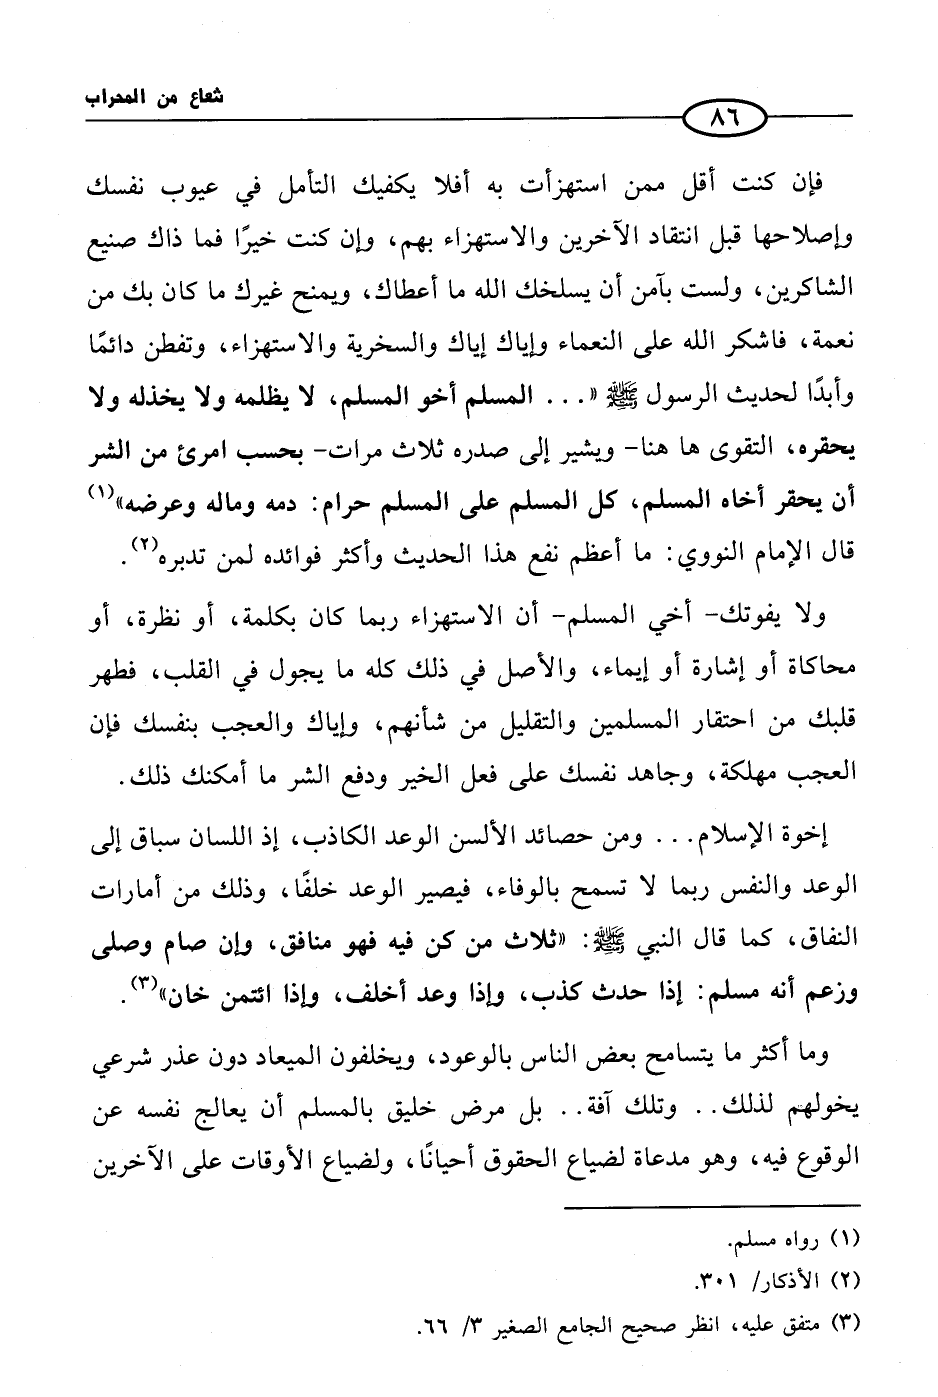 شعاع من المحراب
٨٦
فإن كنت أقل ممن استهزأت به أفلا يكفيك التأمل في عيوب نفسك
وإصلاحها قبل انتقاد الآخرين والاستهزاء بهم، وإن كنت خيرًا فما ذاك صنيع
الشاكرين، ولست بآمن أن يسلخك الله ما أعطاك، ويمنح غيرك ما كان بك من
نعمة، فاشكر الله على النعماء وإياك إياك والسخرية والاستهزاء، وتفطن دائمًا
وأبدًا لحديث الرسول ﷺ «... المسلم أخو المسلم، لا يظلمه ولا يخذله ولا
يحقره، التقوى ها هنا- ويشير إلى صدره ثلاث مرات- بحسب امرئ من الشر
أن يحقر أخاه المسلم، كل المسلم على المسلم حرام: دمه وماله وعرضه»(١)
قال الإمام النووي: ما أعظم نفع هذا الحديث وأكثر فوائده لمن تدبره(٢).
ولا يفوتك- أخي المسلم- أن الاستهزاء ربما كان بكلمة، أو نظرة، أو
محاكاة أو إشارة أو إيماء، والأصل في ذلك كله ما يجول في القلب، فطهر
قلبك من احتقار المسلمين والتقليل من شأنهم، وإياك والعجب بنفسك فإن
العجب مهلكة، وجاهد نفسك على فعل الخير ودفع الشر ما أمكنك ذلك.
إخوة الإسلام... ومن حصائد الألسن الوعد الكاذب، إذ اللسان سباق إلى
الوعد والنفس ربما لا تسمح بالوفاء، فيصير الوعد خلفًا، وذلك من أمارات
النفاق، كما قال النبي ﷺ: «ثلاث من كن فيه فهو منافق، وإن صام وصلى
وزعم أنه مسلم: إذا حدث كذب، وإذا وعد أخلف، وإذا ائتمن خان»(٣).
وما أكثر ما يتسامح بعض الناس بالوعود، ويخلفون الميعاد دون عذر شرعي
يخولهم لذلك.. وتلك آفة.. بل مرض خليق بالمسلم أن يعالج نفسه عن
الوقوع فيه، وهو مدعاة لضياع الحقوق أحيانًا، ولضياع الأوقات على الآخرين
(١) رواه مسلم.
(٢) الأذكار/ ٣٠١.
(٣) متفق عليه، انظر صحيح الجامع الصغير ٣/ ٦٦.